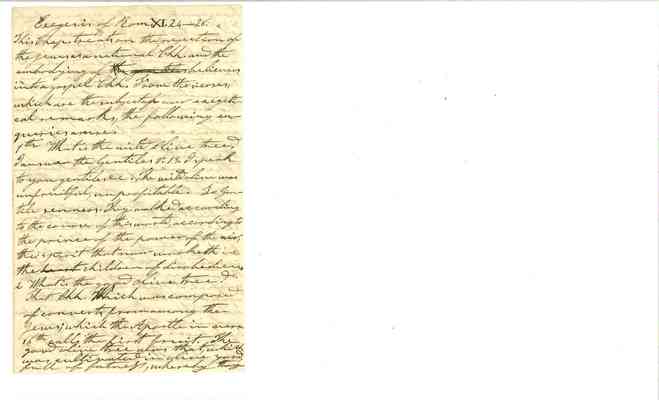 Exegesis of Rom. XI. 24–26.
This Chap. treats on the rejection of
the jews as a national Chh. and the
embodying of the believers
into a gospel Chh. From the verses
which are the subject of our exegeti-
cal remarks, the following en-
queries arise.
1st What is the wild olive tree?
I answer the Gentiles V. 13 I speak
to you gentiles &c. The wild olive was
unfruitful, unprofitable. So Gen-
tile sinners. They walked according
to the course of this world, according to
the prince of the power of the air,
the spirit that now worketh in
the children of disobedience
2 What is the good olive tree?
That Chh. Which was composed
of converts from among the
Jews, which the Apostle in verse
16th calls the first fruit. The
good olive tree was that which
was cultivated in
full of fatness, whereby they